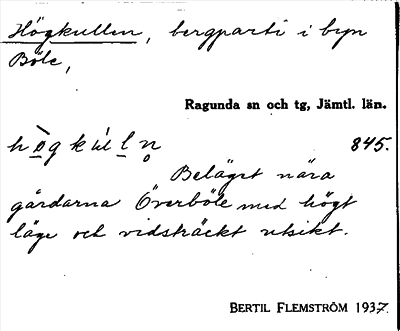 Högkullen, bergparti i byn
Böle,
Ragunda sn och tg, Jämtl. län.
845.
Beläget nära
gårdarna Överböle med högt
läge och vidsträckt utsikt.
BERTIL FLEMSTRÖM 1937.